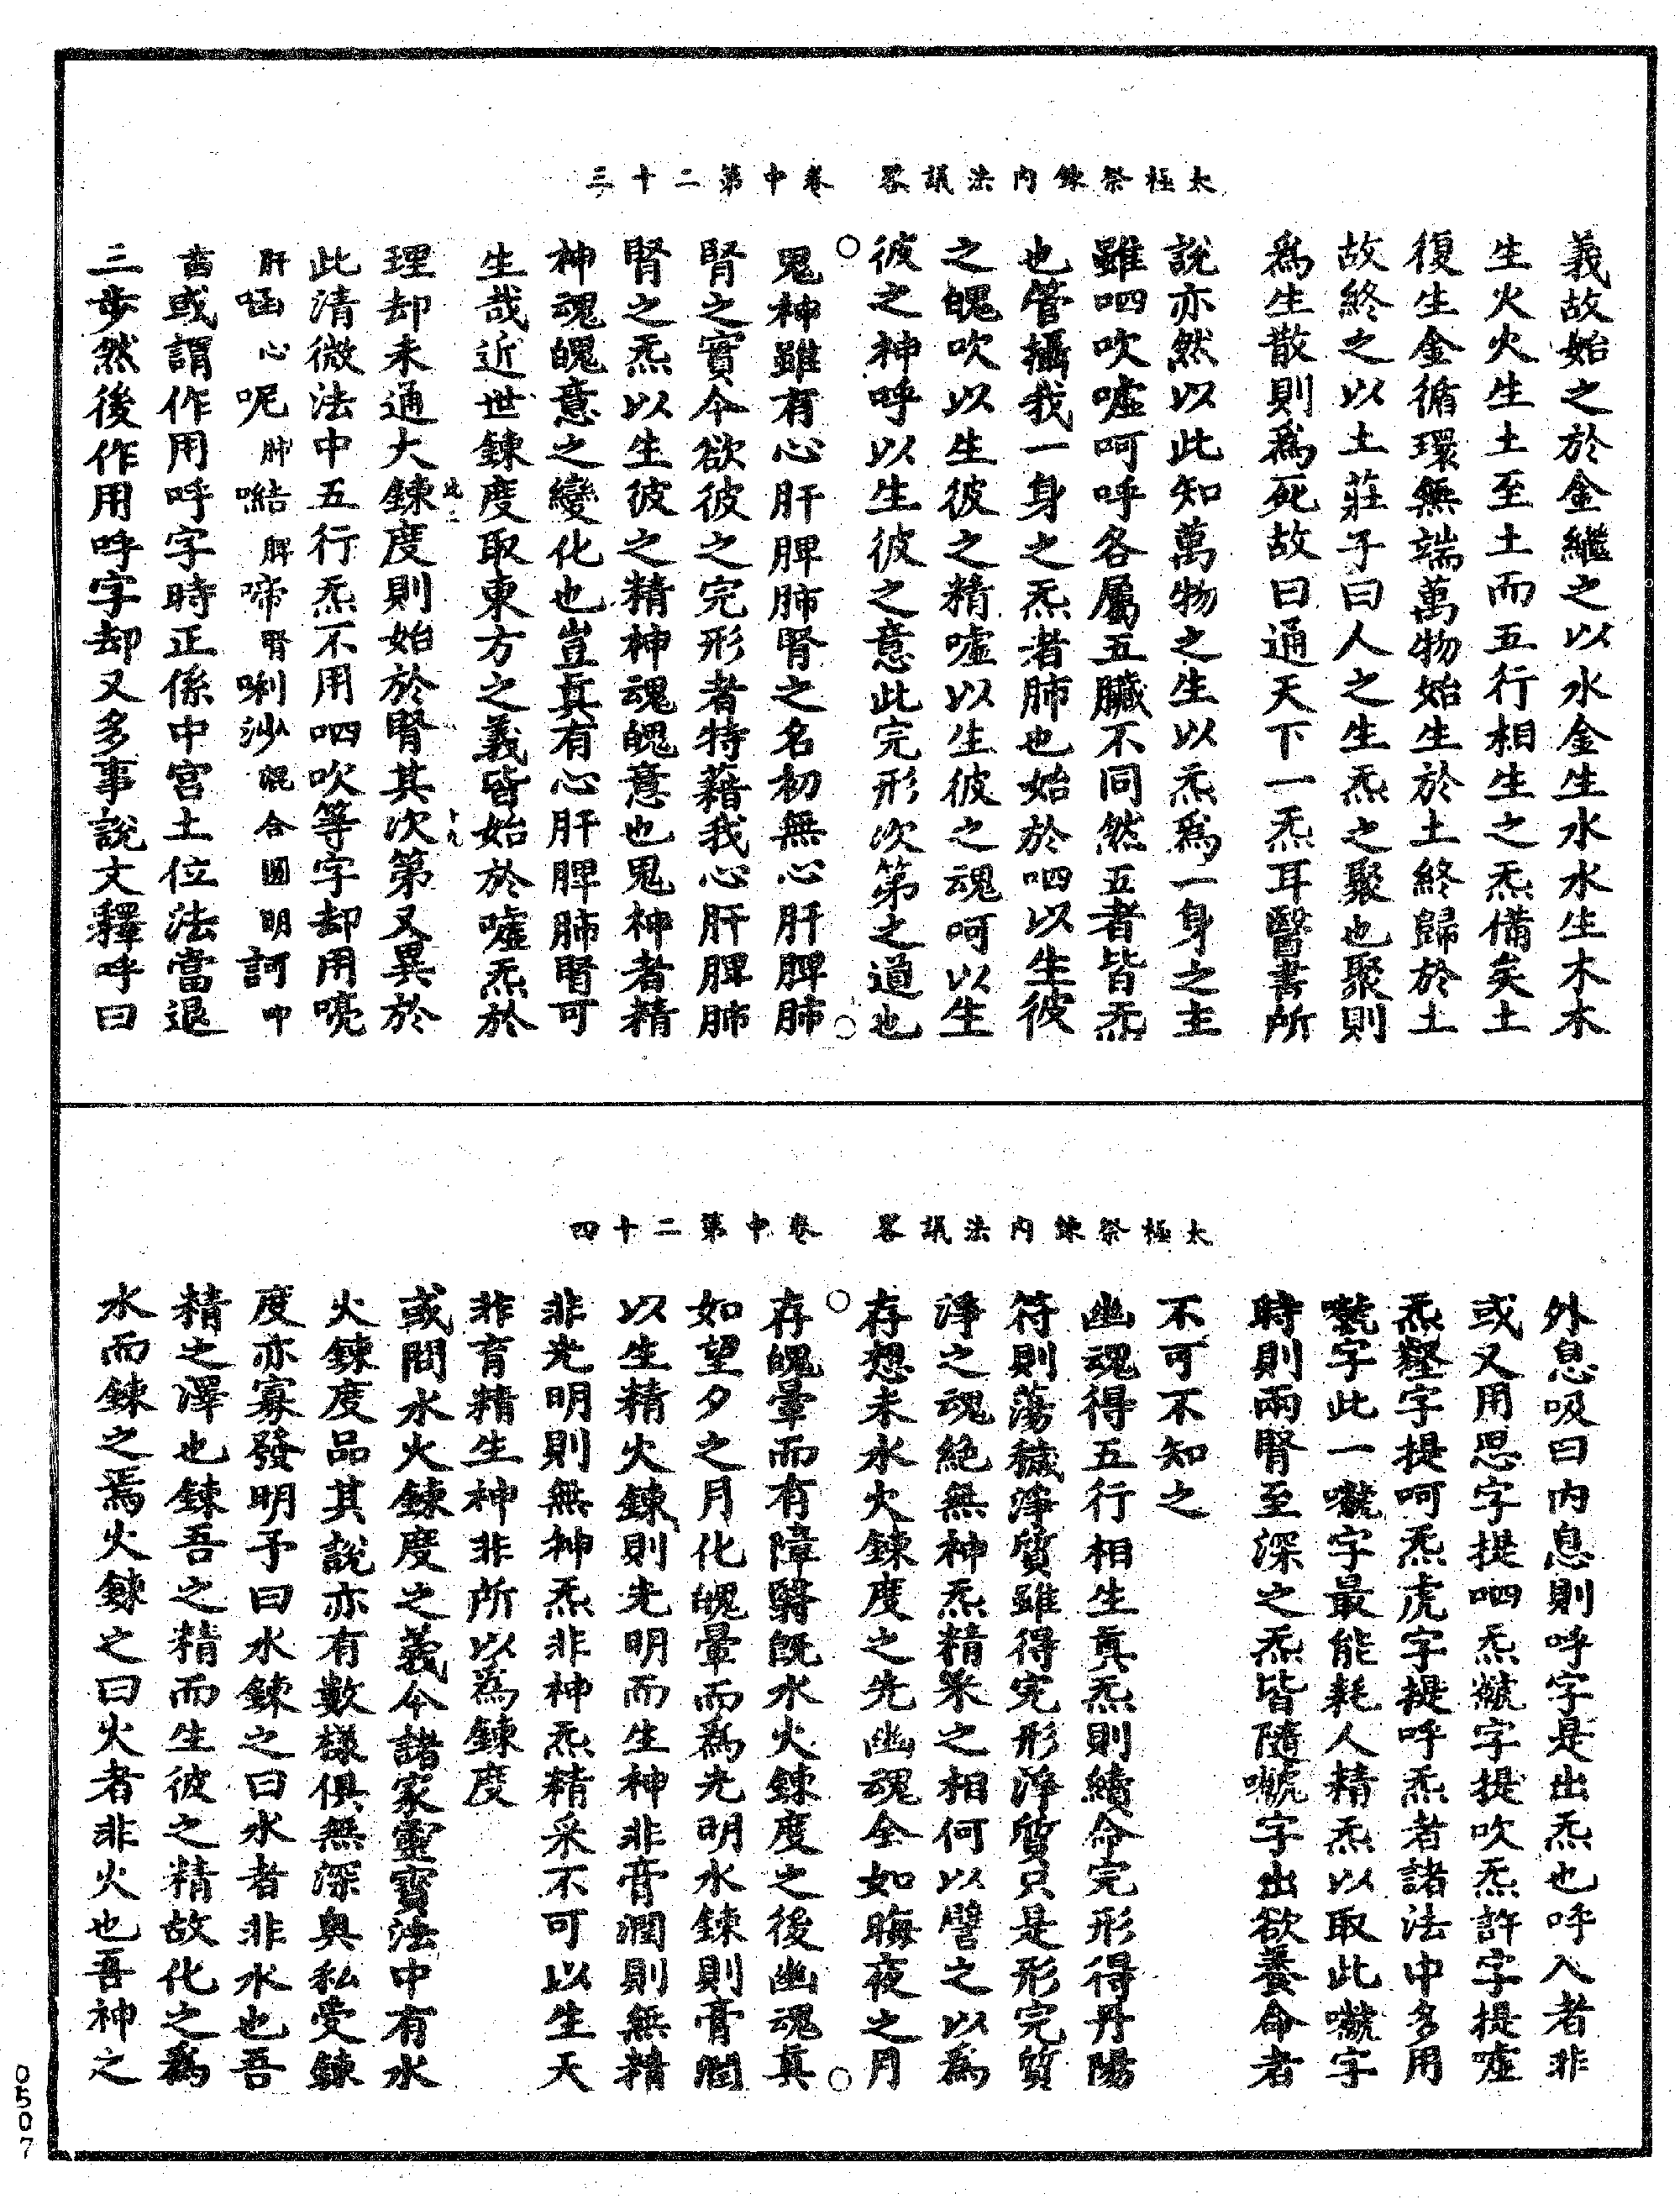 太極祭鍊內法議畧　卷中第二十三
義故始之於金繼之以水金生水水生木木
生火火生土至土而五行相生之炁備矣土
復生金循環無端萬物始生於土終歸於土
故終之以土莊子曰人之生炁之聚也聚則
爲生散則爲死故曰通天下一炁耳醫書所
說亦然以此知萬物之生以炁爲一身之主
雖呬吹噓呵呼各屬五臟不同然五者皆炁
也管攝我一身之炁者肺也始於呬以生彼
之魄吹以生彼之精噓以生彼之魂呵以生
彼之神呼以生彼之意此完形次第之道也
鬼神雖有心肝脾肺腎之名初無心肝脾肺
腎之實今欲彼之完形者特藉我心肝脾肺
腎之炁以生彼之精神魂魄意也鬼神者精
神魂魄意之變化也豈眞有心肝脾肺腎可
生哉近世鍊度取東方之義皆始於噓炁於
理却未通大鍊度則始於腎其次第又異於
此清微法中五行炁不用呬吹等字却用喨
肝㖤心呢肺㘉脾啼腎唎沙混合圓明訶中
宮或謂作用呼字時正係中宮土位法當退
三步然後作用呼字却又多事說文釋呼曰
太極祭鍊內法議畧　卷中第二十四
外息吸曰內息則呼字是出炁也呼入者非
或又用思字提呬炁字提吹炁許字提噓
炁字提呵炁虎字提呼炁者諸法中多用
字此一字最能耗人精炁以取此字
時則兩腎至深之炁皆隨字出欲養命者
不可不知之
幽魂得五行相生眞炁則續命完形得丹陽
符則蕩穢淨質雖得完形淨質只是形完質
淨之魂絕無神炁精釆之相何以譬之以爲
存想未水火鍊度之先幽魂全如晦夜之月
存魄暈而有障翳旣水火鍊度之後幽魂眞
如望夕之月化魄暈而爲光明水鍊則膏潤
以生精火鍊則光明而生神非膏潤則無精
非光明則無神炁非神炁精釆不可以生天
非育精生神非所以爲鍊度
或問水火鍊度之義今諸家靈寶法中有水
火鍊度品其說亦有數樣俱無深奧私受鍊
度亦寡發明予曰水鍊之曰水者非水也吾
精之澤也鍊吾之精而生彼之精故化之爲
水而鍊之焉火鍊之曰火者非火也吾神之
0507